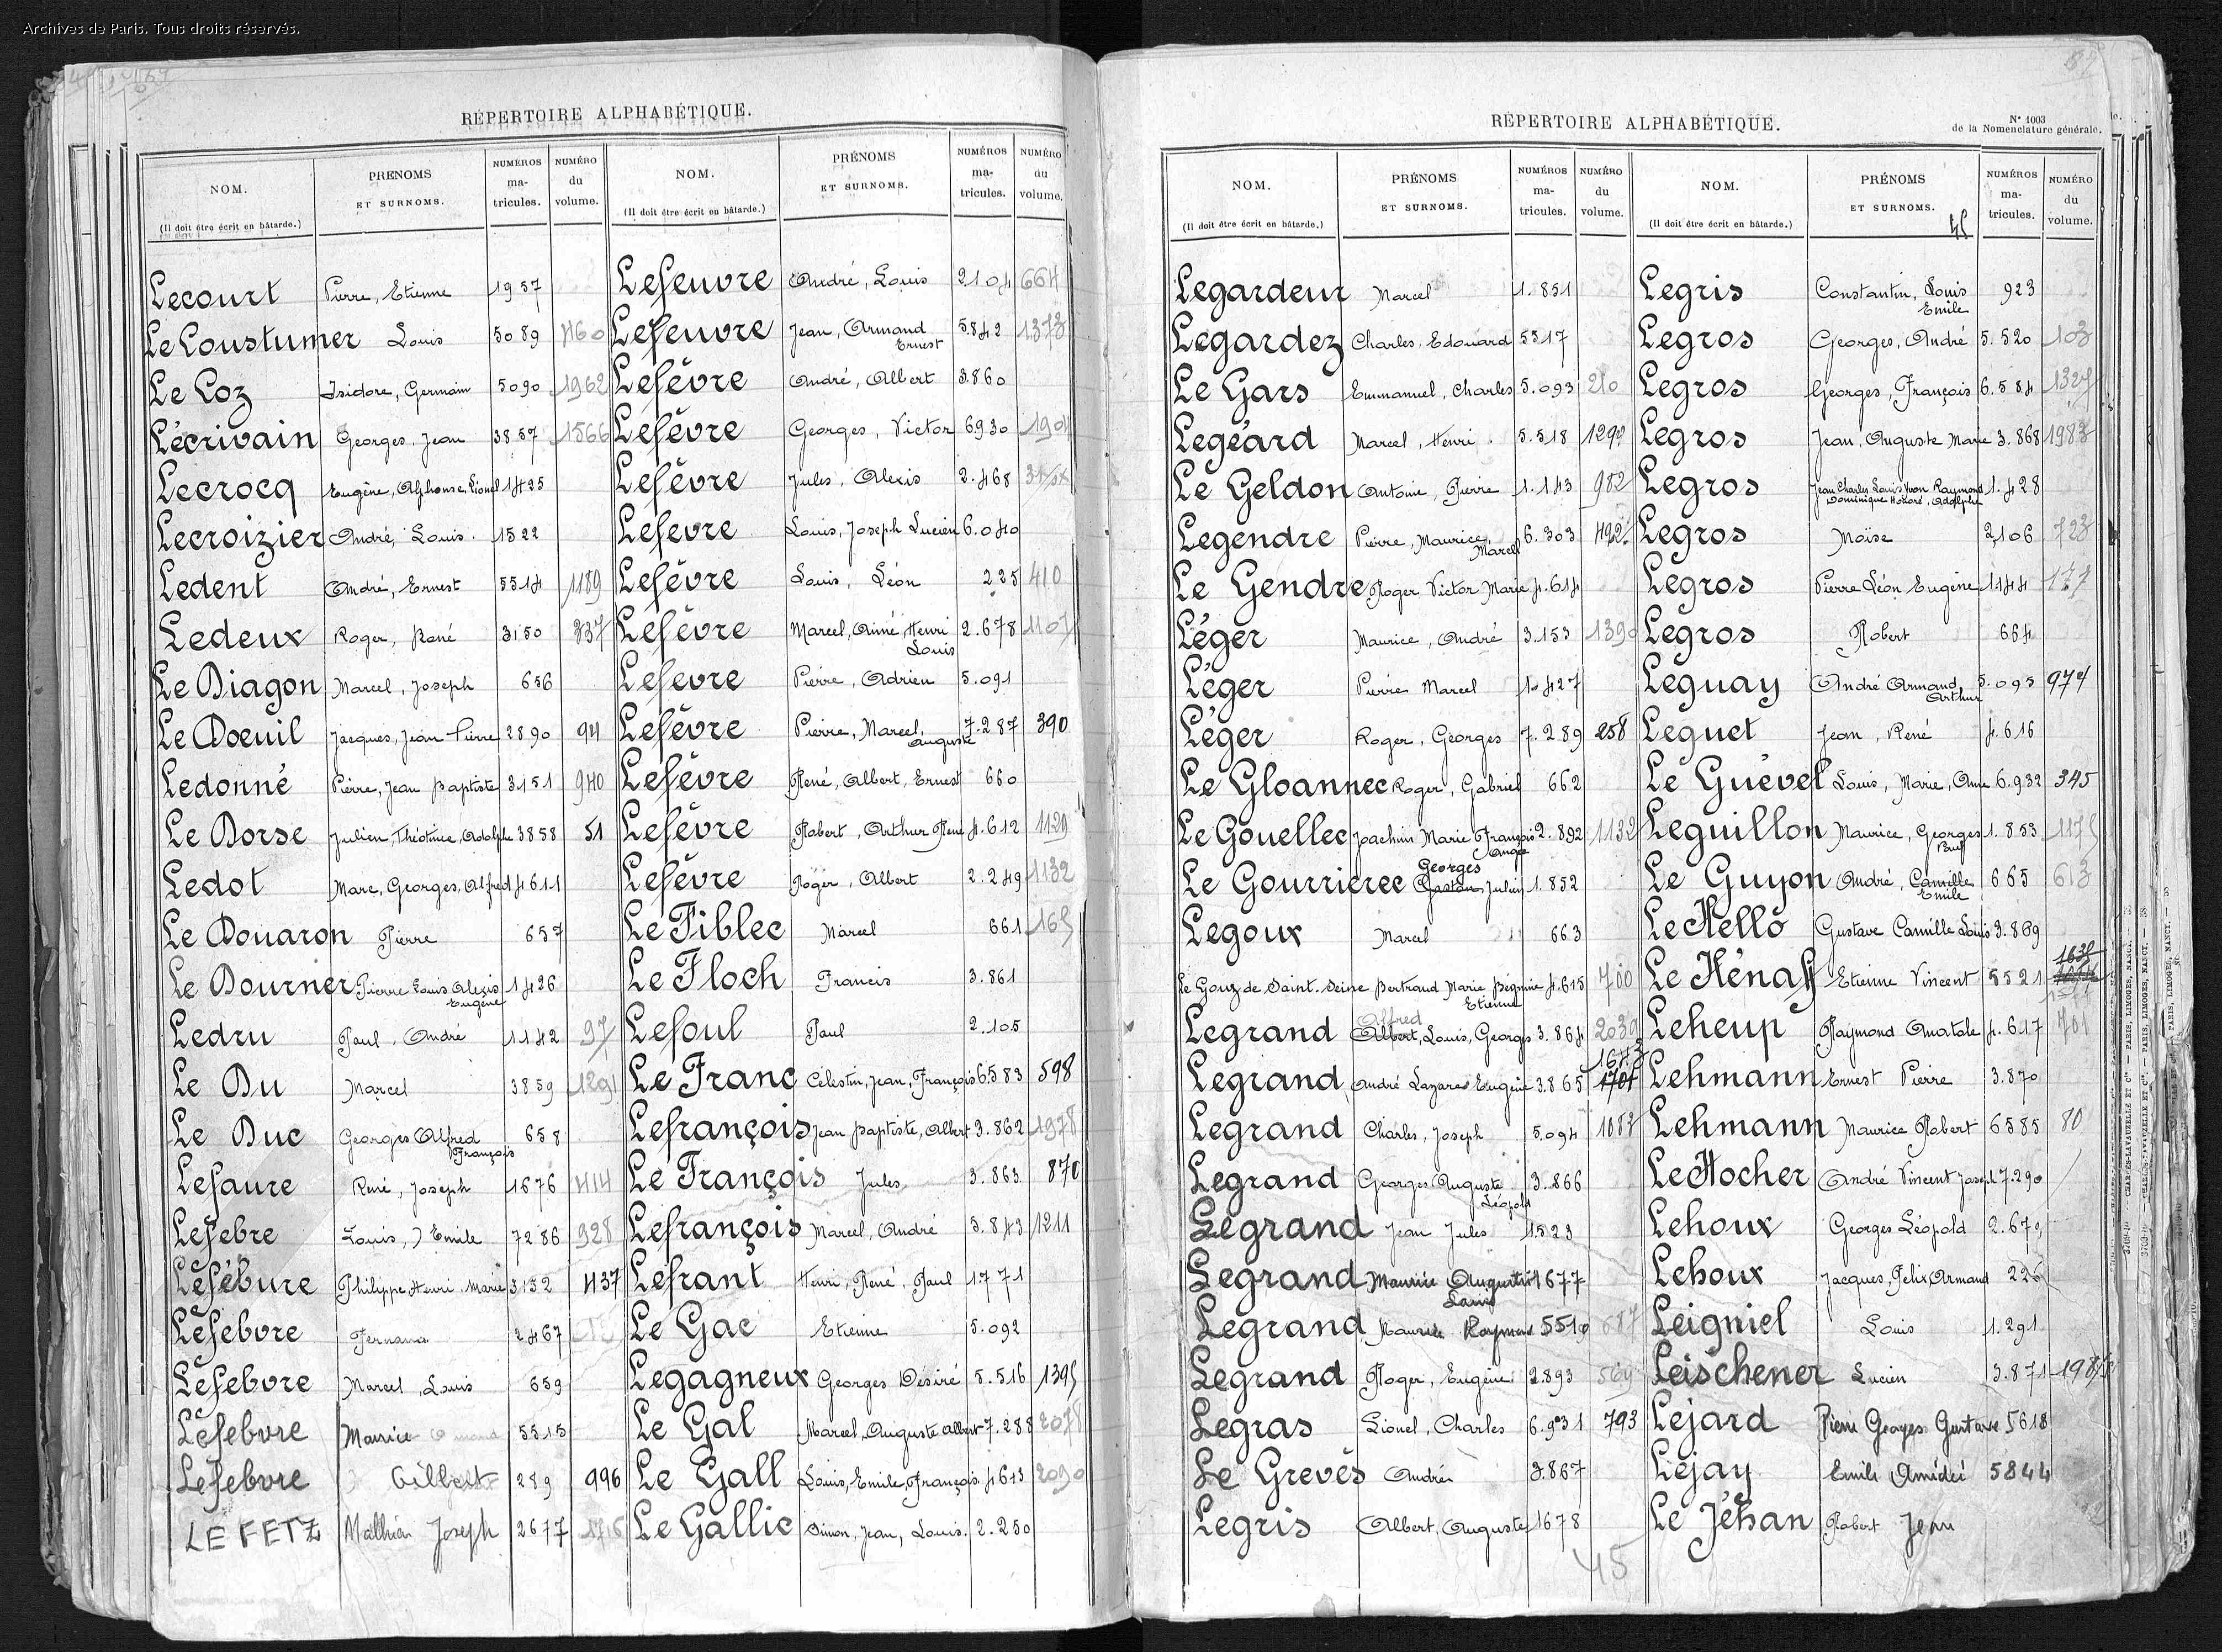 Archives de Paris. Tous droits réservés.
RÉPERTOIRE ALPHABÉTIQUE.
NOM. (Il doit être écrit en bâtarde.) PRÉNOMS ET SURNOMS. NUMÉROS ma-tricules. NUMÉRO du volume.
Lecourt Pierre, Etienne 1957
Le Coustumer Louis 5089 1160
Le Coz Isidore, Germain 5090 1962
Lécrivain Georges, Jean 3857 1566
Lecrocq Eugène, Alphonse, Lionel 1425
Lecroizier André, Louis. 1522
Ledent André, Ernest 5514 1189
Ledeux Roger, René 3150 837
Le Diagon Marcel, Joseph 656
Le Doeuil Jacques, Jean Pierre 2890 94
Ledonné Pierre, Jean Baptiste 3151 940
Le Dorse Julien, Théotime, Adolphe 3858 51
Ledot Marc, Georges, Alfred 4611
Le Douaron Pierre 657
Le Dourner Pierre Louis Alexis Eugène 1426
Ledru Paul, André 1142 97
Le Du Marcel 3859 1291
Le Duc Georges Alfred François 658
Lefaure René, Joseph 1676 414
Lefebre Louis, Emile 7286 928
Lefébure Philippe Henri Marie 3152 437
Lefebvre Fernand 2467
Lefebvre Marcel, Louis 659
Lefebvre Maurice 5515
Lefebvre Gilbert 289 996
LE FETZ Mathieu Joseph 2677
NOM. (Il doit être écrit en bâtarde.) PRÉNOMS ET SURNOMS. NUMÉROS ma-tricules. NUMÉRO du volume.
Lefeuvre André, Louis 2104 664
Lefeuvre Jean, Armand Ernest 5.842 1373
Lefèvre André, Albert 3.860
Lefèvre Georges, Victor 6930 1904
Lefèvre Jules, Alexis 2.468
Lefevre Louis, Joseph Lucien 6.040
Lefèvre Louis, Léon 225 410
Lefèvre Marcel, Aimé, Henri Louis 2.678 1107
Lefevre Pierre, Adrien 5.091
Lefèvre Pierre, Marcel, Auguste 7.287 390
Lefèvre René, Albert, Ernest 660
Lefèvre Robert, Arthur René 4.612 1129
Lefèvre Roger, Albert 2.249 1132
Le Fiblec Marcel 661 165
Le Floch Francis 3.861
Lefoul Paul 2.105
Le Franc Célestin, Jean, François 6583 598
Lefrançois Jean Baptiste, Albert 3.862 1978
Le François Jules 3.863 870
Lefrançois Marcel, André 5.843 1211
Lefrant Henri, René, Paul 1771
Le Gac Etienne 5.092
Legagneux Georges Désiré 5.516 1395
Le Gal Marcel, Auguste Albert 7.288 2078
Le Gall Louis, Emile, François. 4613 2090
Le Gallic Simon, Jean, Louis. 2.250
RÉPERTOIRE ALPHABÉTIQUE.
N° 1003 de la Nomenclature générale.
NOM. (Il doit être écrit en bâtarde.) PRÉNOMS ET SURNOMS. NUMÉROS ma-tricules. NUMÉRO du volume.
Legardeur Marcel 1.851
Legardez Charles, Edouard 5517
Le Gars Emmanuel, Charles 5.093 210
Legéard Marcel, Henri. 5.518 1292
Le Geldon Antoine, Pierre 1.143 982
Legendre Pierre, Maurice, Marcel 6.303
Le Gendre Roger Victor Marie 4.614
Léger Maurice, André 3.153 1390
Léger Pierre Marcel 1.427
Léger Roger, Georges 7.289 258
Le Gloannec Roger, Gabriel 662
Le Gouellec Joachim Marie François Ange 2.892 1132
Le Gourrierec Georges Gaston Julien 1.852
Legoux Marcel 663
Le Gouz de Saint-Seine Bertrand Marie Bégnine Etienne 4.615 700
Legrand Alfred Albert, Louis, Georges 3.864 2039
Legrand André Lazare Eugène 3.865 1643 1701
Legrand Charles, Joseph 5.094 1087
Legrand Georges Auguste Léopold 3.866
Legrand Jean Jules 1.523
Legrand Maurice Augustin Louis 1677
Legrand Maurice Raymond 5519 687
Legrand Roger, Eugène 2.893 569
Legras Lionel, Charles 6.931 793
Le Grevès André 3.867
Legris Albert, Auguste 1678
45
NOM. (Il doit être écrit en bâtarde.) PRÉNOMS ET SURNOMS. 45 NUMÉROS ma-tricules. NUMÉRO du volume.
Legris Constantin, Louis Emile 923
Legros Georges, André 5.520 103
Legros Georges, François 6.584 1327
Legros Jean, Auguste Marie 3.868 1983
Legros Jean Charles Louis Yvon Raymond Dominique Honoré, Adolphe 1.428
Legros Moïse 2,106 723
Legros Pierre Léon Eugène 1144 177
Legros Robert 664
Leguay André Armand Arthur 5.095 974
Leguet Jean, René 4.616
Le Guével Louis, Marie, Ange 6.932 345
Leguillon Maurice, Georges Paul 1.853 1175
Le Guyon André, Camille Emile 665 613
Le Hello Gustave Camille Louis 3.869
Le Hénaff Etienne Vincent 5521 1638
Leheup Raymond Anatole 4.617 761
Lehmann Ernest Pierre 3.870
Lehmann Maurice Robert 6585 80
Le Hocher André Vincent Joseph 7.290
Lehoux Georges Léopold 2.679
Lehoux Jacques, Félix, Armand 226
Leigniel Louis 1.291
Leischener Lucien 3.871
Lejard Pierre Georges Gustave 5618
Lejay Emile Amédée 5844
Le Jéhan Robert Jean